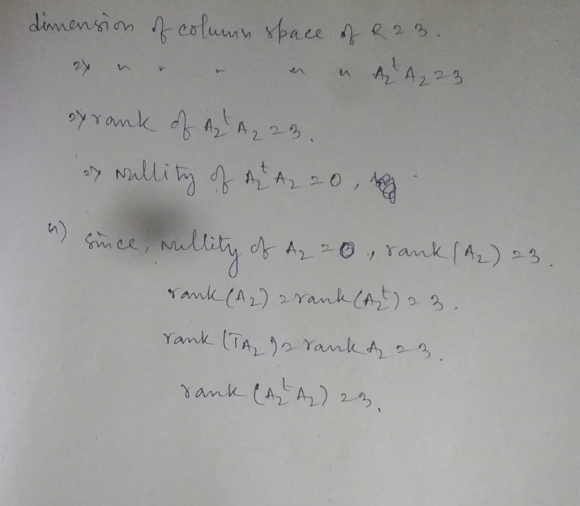 dimension of column space of R = 3.
=> " " " " " A₂ᵗA₂ = 3
=> rank of A₂ᵗA₂ = 3.
=> nullity of A₂ᵗA₂ = 0,
since, nullity of A₂ = 0, rank(A₂) = 3.
rank(A₂) = rank(A₂ᵗ) = 3.
rank(TA₂) = rank A₂ = 3.
rank(A₂ᵗA₂) = 3.